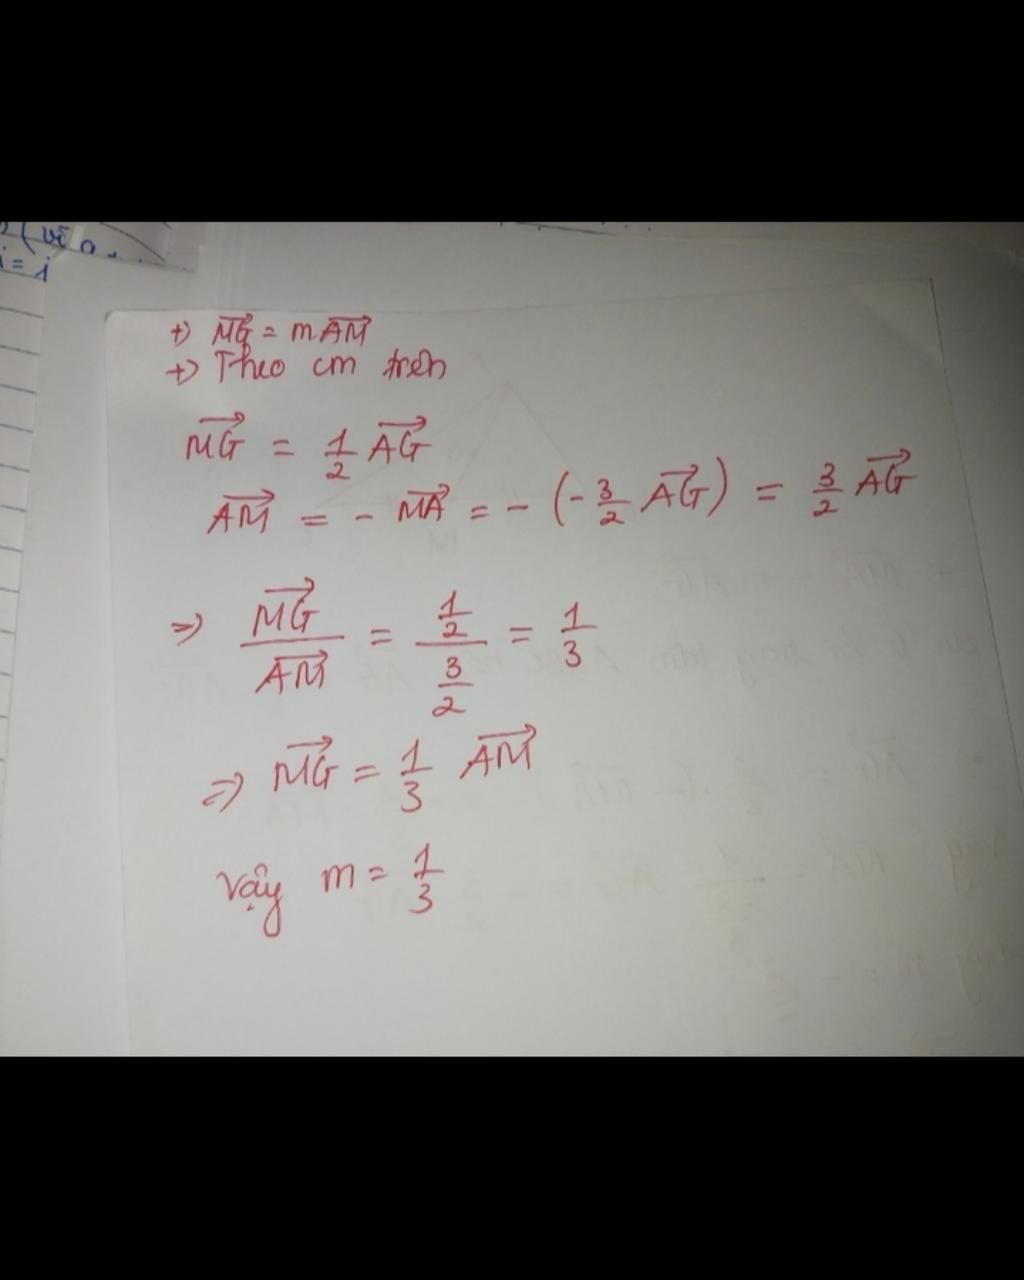 (vì a
i = i
+) MG = mAM
+) Theo cm trên
MG = 1/2 AG
AM = - MA = - (-3/2 AG) = 3/2 AG
=> MG/AM = 1/2 / 3/2 = 1/3
=> MG = 1/3 AM
Vậy m = 1/3